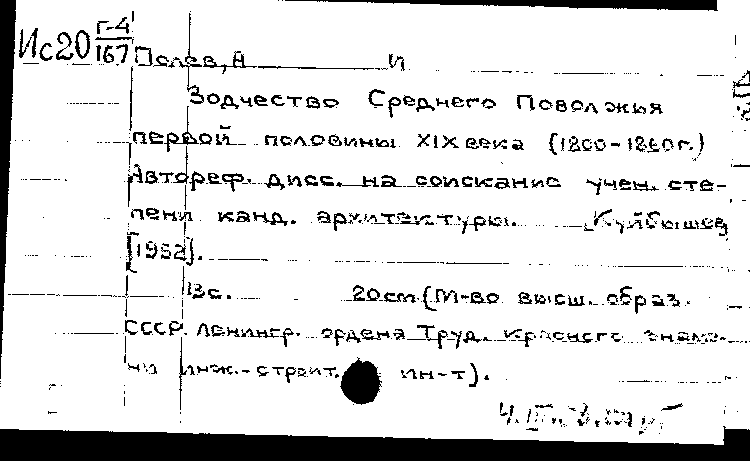 Ис20 Г-4/167
Полев, А И
Зодчество Среднего Поволжья
первой половины XIX века (1800-1860г.)
Автореф. дисс. на соискание учен. сте-
пени канд. архитектуры. Куйбышев,
[1952].
13с. 20см (М-во высш. образ.
СССР. Ленингр. ордена Труд. Красного знаме-
ни инж.-строит. ин-т).